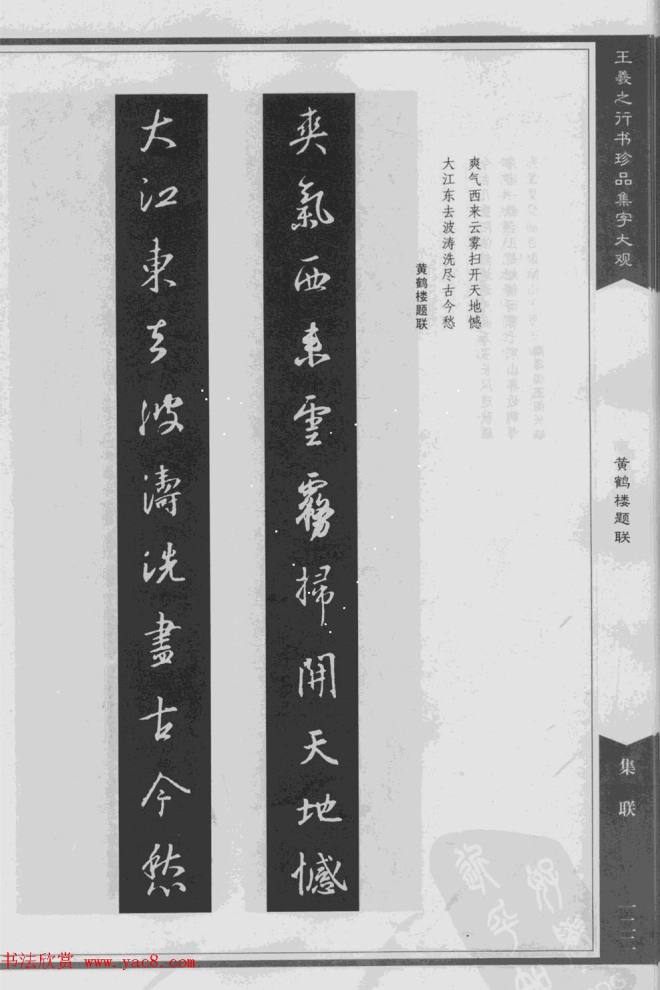 王羲之行书珍品集字大观
黄鹤楼题联
集联
一二一
爽气西来云雾扫开天地憾
大江东去波涛洗尽古今愁
黄鹤楼题联
爽氣西来雲霧掃開天地憾
大江東去波濤洗盡古今愁
书法欣赏 www.yac8.com